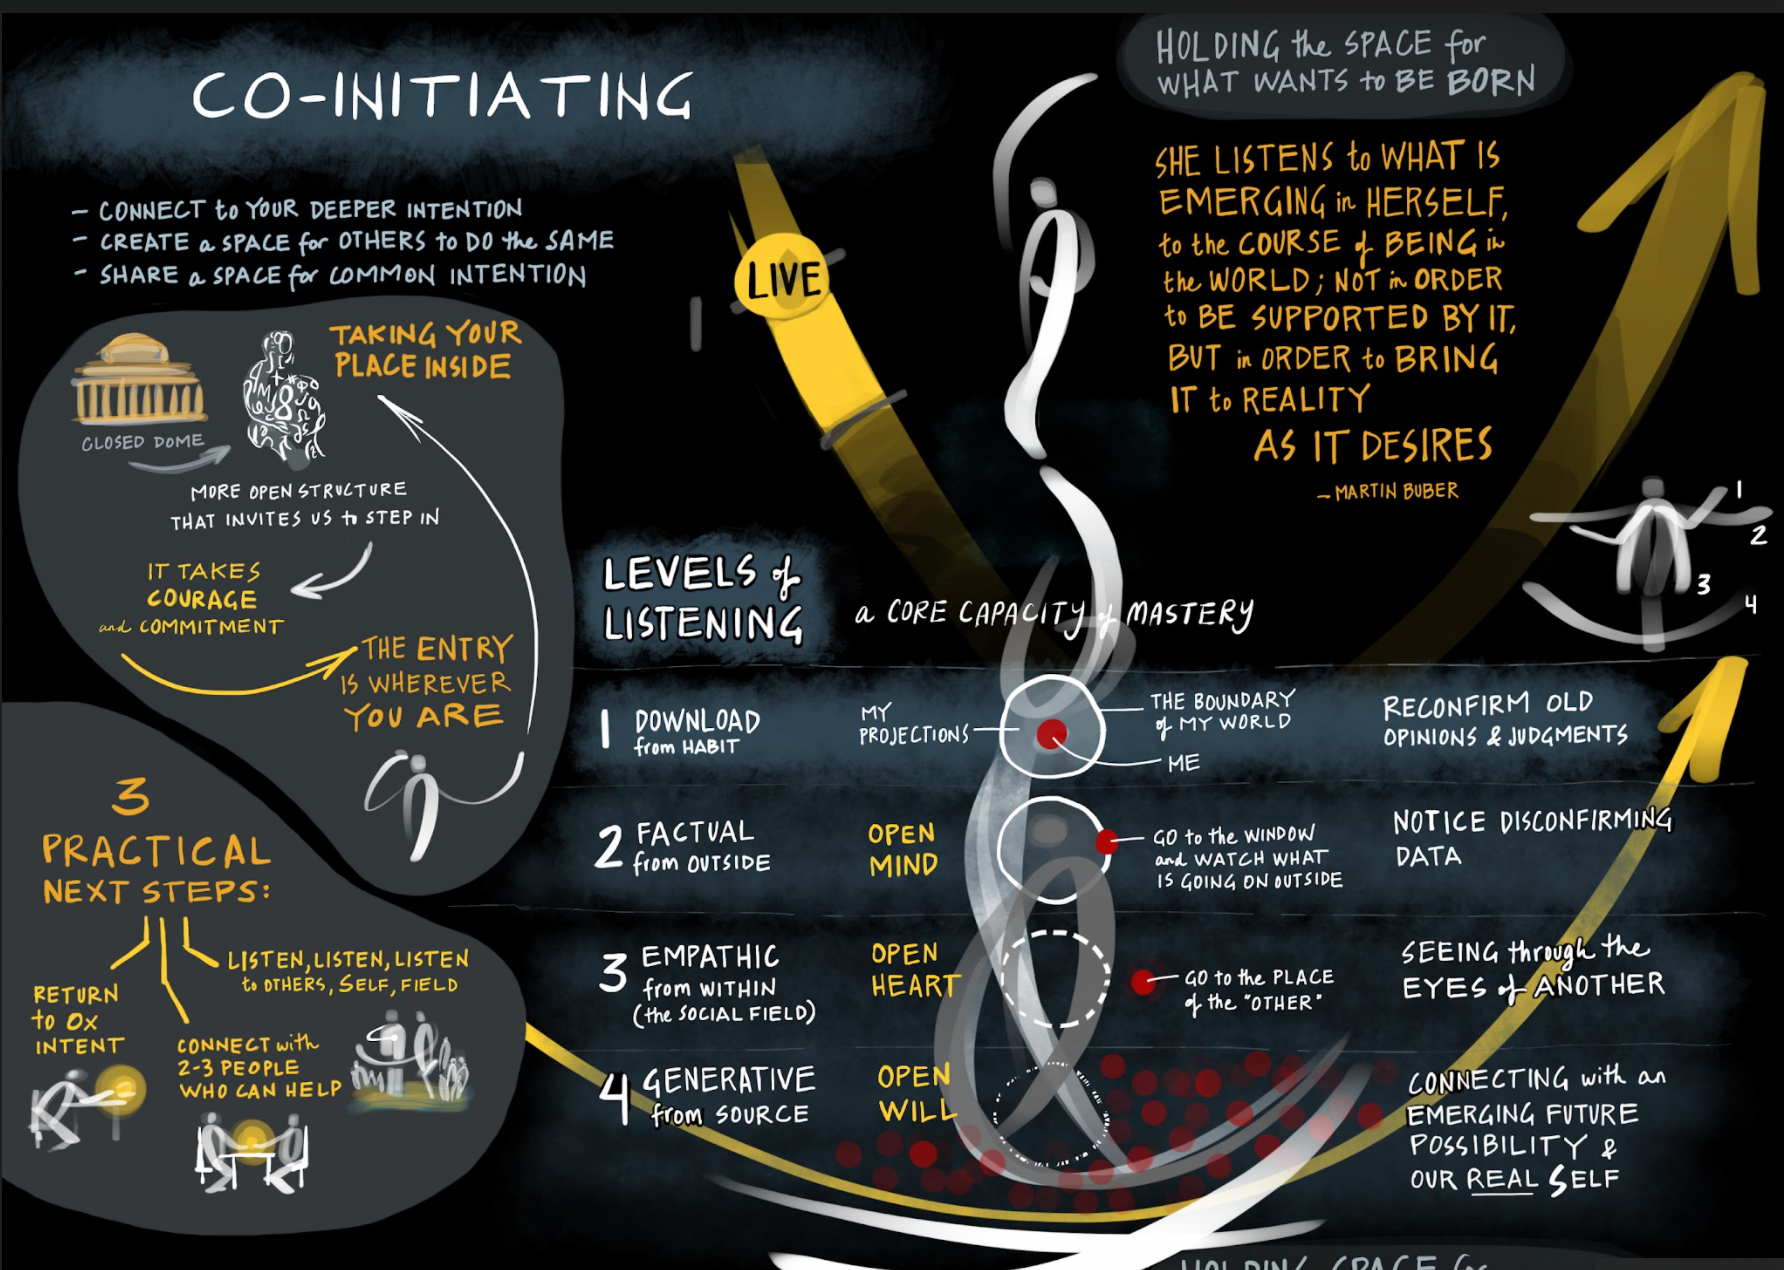 CO-INITIATING
- CONNECT to YOUR DEEPER INTENTION
- CREATE a SPACE for OTHERS to DO the SAME
- SHARE a SPACE for COMMON INTENTION
TAKING YOUR
PLACE INSIDE
CLOSED DOME
MORE OPEN STRUCTURE
THAT INVITES US to STEP IN
IT TAKES
COURAGE
and COMMITMENT
THE ENTRY
IS WHEREVER
YOU ARE
3
PRACTICAL
NEXT STEPS:
RETURN
to OX
INTENT
CONNECT with
2-3 PEOPLE
WHO CAN HELP
LISTEN, LISTEN, LISTEN
to OTHERS, SELF, FIELD
LIVE
HOLDING the SPACE for
WHAT WANTS to BE BORN
SHE LISTENS to WHAT IS
EMERGING in HERSELF,
to the COURSE of BEING in
the WORLD; NOT in ORDER
to BE SUPPORTED BY IT,
BUT in ORDER to BRING
IT to REALITY
AS IT DESIRES
- MARTIN BUBER
1
2
3
4
LEVELS of
LISTENING
a CORE CAPACITY of MASTERY
1 DOWNLOAD
from HABIT
MY
PROJECTIONS
THE BOUNDARY
of MY WORLD
ME
RECONFIRM OLD
OPINIONS & JUDGMENTS
2 FACTUAL
from OUTSIDE
OPEN
MIND
GO to the WINDOW
and WATCH WHAT
IS GOING ON OUTSIDE
NOTICE DISCONFIRMING
DATA
3 EMPATHIC
from WITHIN
(the SOCIAL FIELD)
OPEN
HEART
GO to the PLACE
of the "OTHER"
SEEING through the
EYES of ANOTHER
4 GENERATIVE
from SOURCE
OPEN
WILL
CONNECTING with an
EMERGING FUTURE
POSSIBILITY &
OUR REAL SELF
HOLDING SPACE for